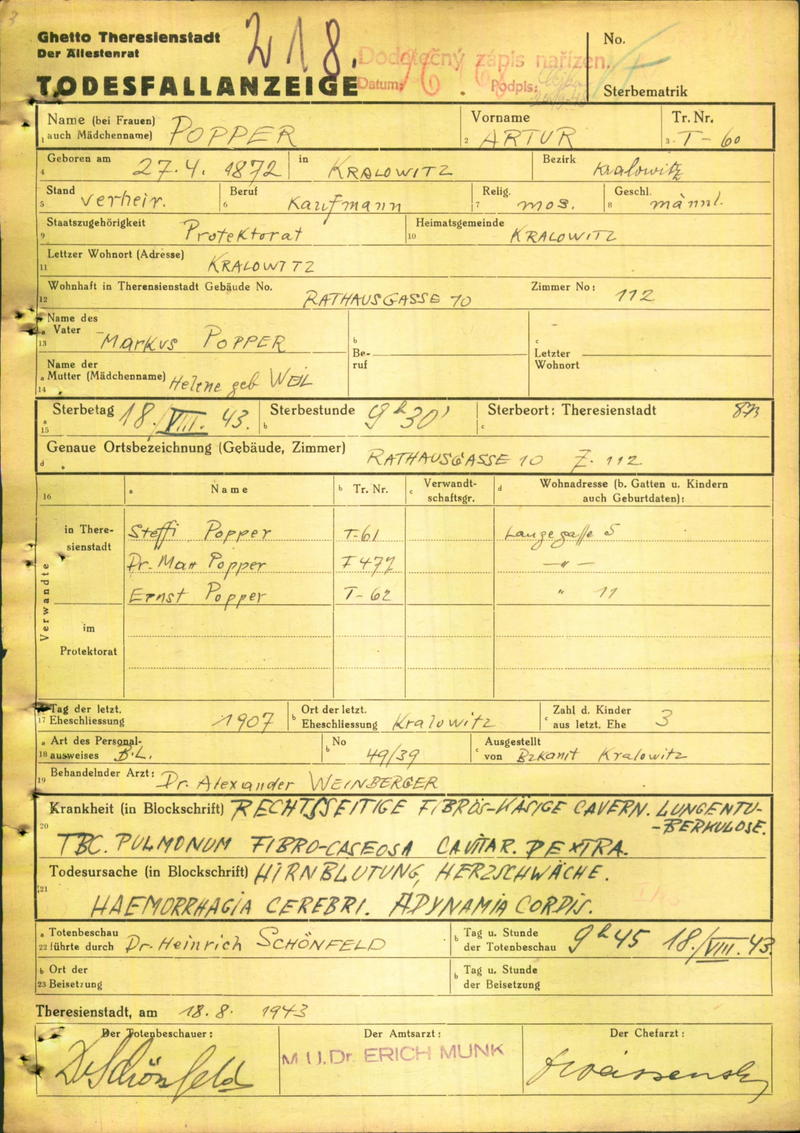 Ghetto Theresienstadt
Der Ältestenrat
218.
Dodatečný zápis nařízen.
Datum:
Podpis:
No.
TODESFALLANZEIGE
Sterbematrik
Name (bei Frauen) auch Mädchenname) POPPER
1
Vorname ARTUR
2
Tr. Nr. T-60
3
Geboren am 27.4. 1872 in KRALOWITZ Bezirk Kralowitz
4
Stand verheir. Beruf Kaufmann Relig. mos. Geschl. männl.
5 6 7 8
Staatszugehörigkeit Protektorat Heimatsgemeinde KRALOWITZ
9 10
Lettzer Wohnort (Adresse) KRALOWITZ
11
Wohnhaft in Therensienstadt Gebäude No. RATHAUSGASSE 10 Zimmer No: 112
12
Name des Vater Markus POPPER
a 13
b Beruf
c Letzter Wohnort
Name der Mutter (Mädchenname) Helene geb WEIL
a 14
Sterbetag 18/VIII. 43. Sterbestunde 9h30' Sterbeort: Theresienstadt
a 15 b c
Genaue Ortsbezeichnung (Gebäude, Zimmer) RATHAUSGASSE 10 Z. 112
d
16 a Name b Tr. Nr. c Verwandtschaftsgr. d Wohnadresse (b. Gatten u. Kindern auch Geburtdaten):
Verwandte
in Theresienstadt
Steffi Popper T-61 Langegasse 5
Dr. Max Popper 477 —"—
Ernst Popper T-62 " 11
im Protektorat
Tag der letzt. Eheschliessung 1907 Ort der letzt. Eheschliessung Kralowitz Zahl d. Kinder aus letzt. Ehe 3
17 b c
a Art des Personalausweises B.L. No 49/39 Ausgestellt von Bzkamt Kralowitz
18 b c
Behandelnder Arzt: Dr. Alexander WEINBERGER
19
Krankheit (in Blockschrift) RECHTSSEITIGE FIBRÖS-KÄSIGE CAVERN. LUNGENTU-
-BERKULOSE.
20
TBC. PULMONUM FIBRO-CASEOSA CAVITAR. DEXTRA.
Todesursache (in Blockschrift) HIRNBLUTUNG, HERZSCHWÄCHE.
21
HAEMORRHAGIA CEREBRI. ADYNAMIA CORDIS.
a Totenbeschau führte durch Dr. Heinrich SCHÖNFELD b Tag u. Stunde der Totenbeschau 9h45 18./VIII. 43.
22
b Ort der Beisetzung b Tag u. Stunde der Beisetzung
23
Theresienstadt, am 18.8. 1943
Der Totenbeschauer: Der Amtsarzt: Der Chefarzt:
Dr Schönfeld
MUDr. ERICH MUNK